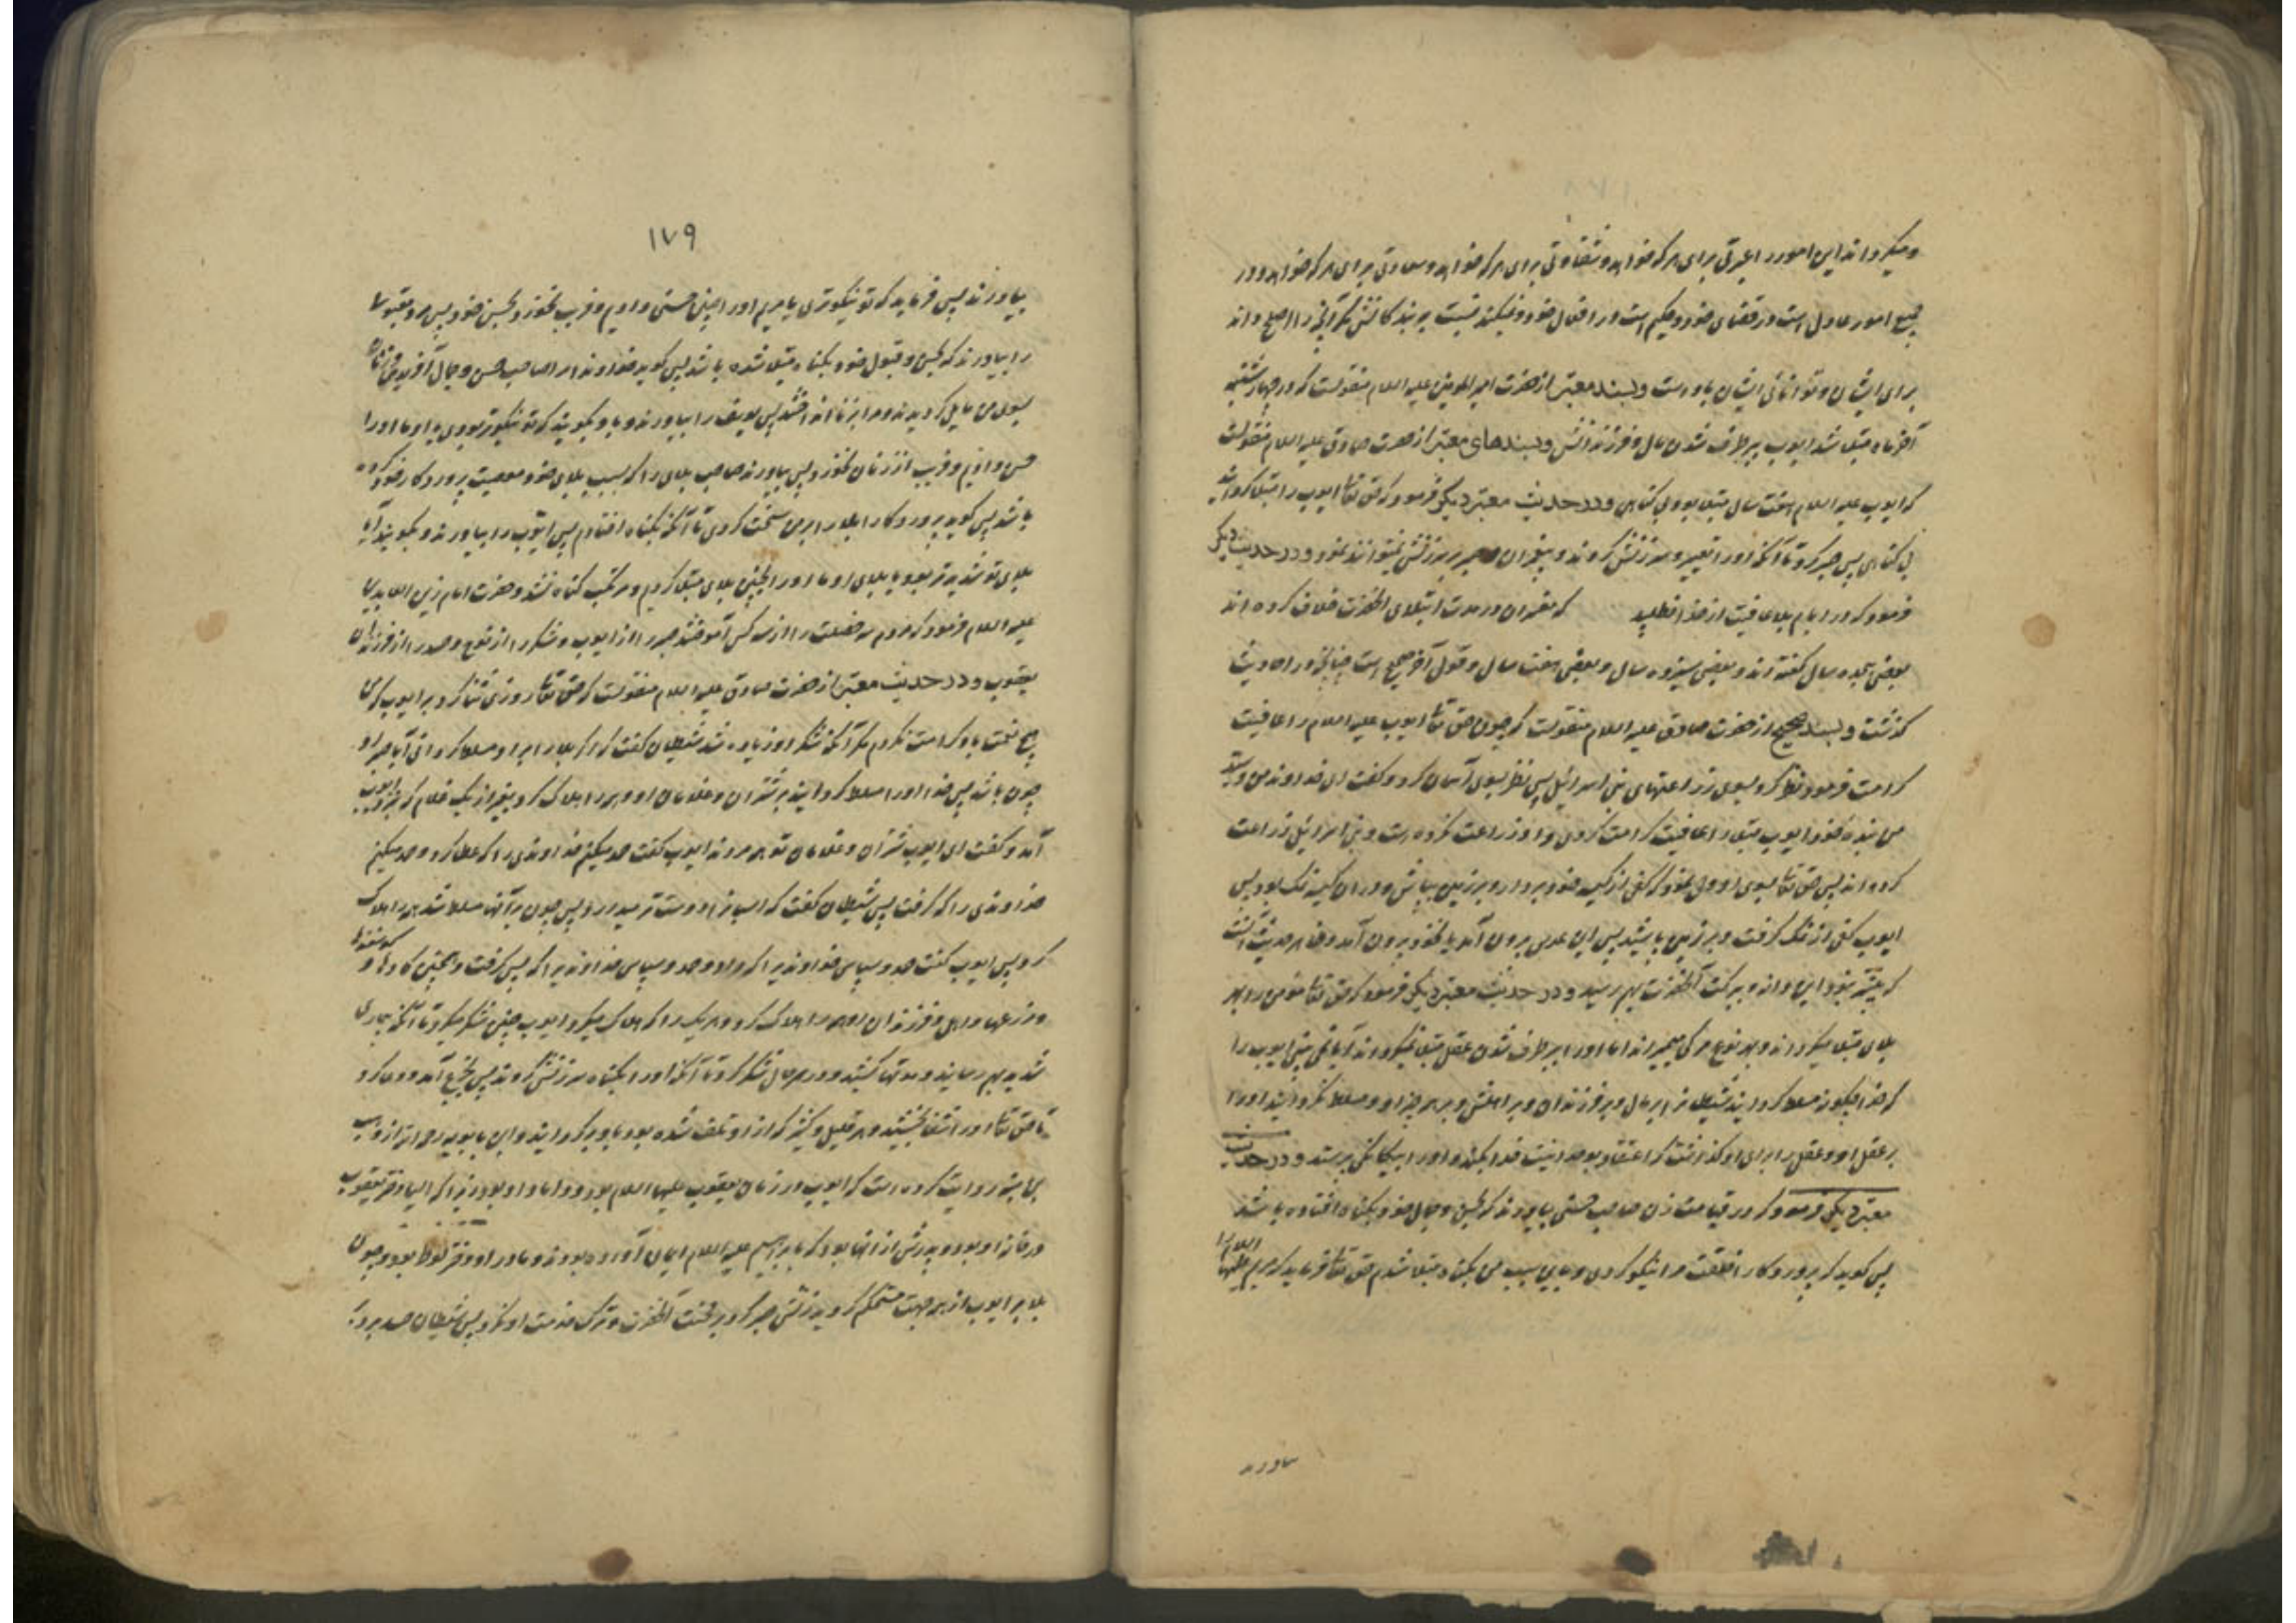 و میگرداند این امور را عبرتی برای هر که خواهد و شقاوتی برای هر که خواهد و سعادتی برای هر که خواهد و در
جمیع امور عادل است در قضای خود و حکیم است در افعال خود و نمیکند نسبت به بندگانش مگر آنچه را اصلح داند
برای ایشان و توانائی ایشان باوست و بسند معتبر از حضرت امیر المومنین علیه السلام منقولست که در چهارشنبه
آخر ماه مبتلا شد ایوب ببرطرف شدن مال و فرزندانش و بسندهای معتبر از حضرت صادق علیه السلام منقولست
که ایوب علیه السلام هفت سال مبتلا بود بی گناهی و در حدیث معتبر دیگر فرمود که حق تعا ایوب را مبتلا کردانید
بی گناهی پس صبر کرد تا آنکه او را تعییر و سرزنش کردند و پیغمبران صبر بر سرزنش نمیتوانند نمود و در حدیث دیگر
فرمود که در ایام بلا عافیت از خدا نطلبید که مفسران در مدت ابتلای آنحضرت خلاف کرده اند
بعضی هجده سال گفته اند و بعضی سیزده سال و بعضی هفت سال و قول آخر صحیح است چنانچه در احادیث
گذشت و بسند صحیح از حضرت صادق علیه السلام منقولست که چون حق تعا ایوب علیه السلام را عافیت
کرامت فرمود نظر کرد بسوی زراعتهای بنی اسرائیل پس نظر بسوی آسمان کرد و گفت ای خداوند من و سید
من بنده خود ایوب مبتلا را عافیت کرامت کردی و او زراعت نکرده است و بنی اسرائیل زراعت
کرده اند پس حق تعا بسوی او وحی نمود که کفی از کیسه خود بردار و بر زمین بپاش و در ان کیسه نمک بود پس
ایوب کفی از نمک گرفت و بر زمین پاشید پس این عدس بیرون آمد یا نخود بیرون آمد و ظاهر حدیث آنست
که پیشتر نبود این دانه و ببرکت آنحضرت بهم رسید و در حدیث معتبر دیگر فرمود که حق تعا مومن را بهر
بلائی مبتلا میگرداند و بهر نوع مرگی میمیراند اما او را ببرطرف شدن عقل مبتلا نمیگرداند آیا نمی بینی ایوب را
که خدا چگونه مسلط گردانید شیطان را بر مال و بر فرزندان و بر اهلش و بر همه چیز او و مسلط نگردانید او را
بر عقل او و عقل را برای او گذاشت که اعتقاد بوحدانیت خدا بکند و او را بیگانگی بپرستد و در حدیث
معتبر دیگر فرمود که در قیامت زن صاحب حسنی بیاورند که بحسن و جمال خود بگناه افتاده باشد
پس گوید که پروردگارا خلقت مرا نیکو کردی و باین سبب من بگناه مبتلا شدم حق تعا فرماید که مریم علیها
السلام را
بیاورند
۱۷۹
بیاورند پس فرماید که تو نیکوتری یا مریم او را چنین حسنی دادیم و فریب نخورد بحسن خود پس مرد مقبولی
را بیاورند که بحسن و قبول خود بگناه مبتلا شده باشد پس گوید خداوندا مرا صاحب حسن و جمال آفریدی و زنان
بسوی من مایل گردیدند و مرا بزنا انداختند پس یوسف را بیاورند و باو بگویند که تو نیکوتر بودی یا او ما او را
حسن دادیم و فریب از زنان نخورد پس بیاورند صاحب بلائی را که بسبب بلای خود معصیت پروردگار خود کرده
باشد پس گوید پروردگارا بلا را بر من سخت کردی تا آنکه بگناه افتادم پس ایوب را بیاورند و بگویند آیا
بلای تو شدیدتر بود یا بلای او ما او را بچنین بلای مبتلا کردیم و مرتکب گناه نشد و حضرت امام زین العابدین
علیه السلام فرمود که مردم سه خصلت را از سه کس آموختند صبر را از ایوب و شکر را از نوح و حسد را از فرزندان
یعقوب و در حدیث معتبر از حضرت صادق علیه السلام منقولست که حق تعا روزی ثنا کرد بر ایوب که من
هیچ نعمت باو کرامت نکردم مگر آنکه شکر او زیاده شد شیطان گفت که اگر بلا را بر او مسلط گردانی آیا صبر او
چون باشد پس خدا او را مسلط گردانید بر شتران و غلامان او و همه را هلاک کرد بغیر از یک غلام که بنزد ایوب
آمد و گفت ای ایوب شتران و غلامان تو همه مردند ایوب گفت حمد میکنم خداوندی را که عطا کرد و حمد میکنم
خداوندی را که گرفت پس شیطان گفت که اسپانرا دوست تر میدارد پس چون بر آنها مسلط شد همه را هلاک
کرد پس ایوب گفت حمد و سپاس خداوندیرا که داد و حمد و سپاس خداوندیرا که پس گرفت و همچنین گاوها و گوسفندها
و مزرعها و اهل و فرزندان او همه را هلاک کرد و هر یک را که هلاک میکرد ایوب چنین شکر میکرد تا آنکه بیماری
شدید بهم رسانید و مدتها کشید و در هر حال شکر کرد تا آنکه او را بگناه سرزنش کردند پس بجزع آمد و دعا کرد
تا حق تعا او را شفا بخشید و هر قلیل و کثیر که از او تلف شده بود باو برگردانید و ابن بابویه رحمه الله از وهب
بن منبه روایت کرده است که ایوب در زمان یعقوب علیهما السلام بود و داماد او بود زیرا که الیا دختر یعقوب
در خانه او بود و پدرش از آنها بود که بابراهیم علیه السلام ایمان آورده بودند و مادر او دختر لوط بود و چون
بلا بر ایوب از همه جهت مستحکم گردید زنش صبر کرد بر محنت آنحضرت و ترک خدمت او نکرد پس شیطان حسد برد بر